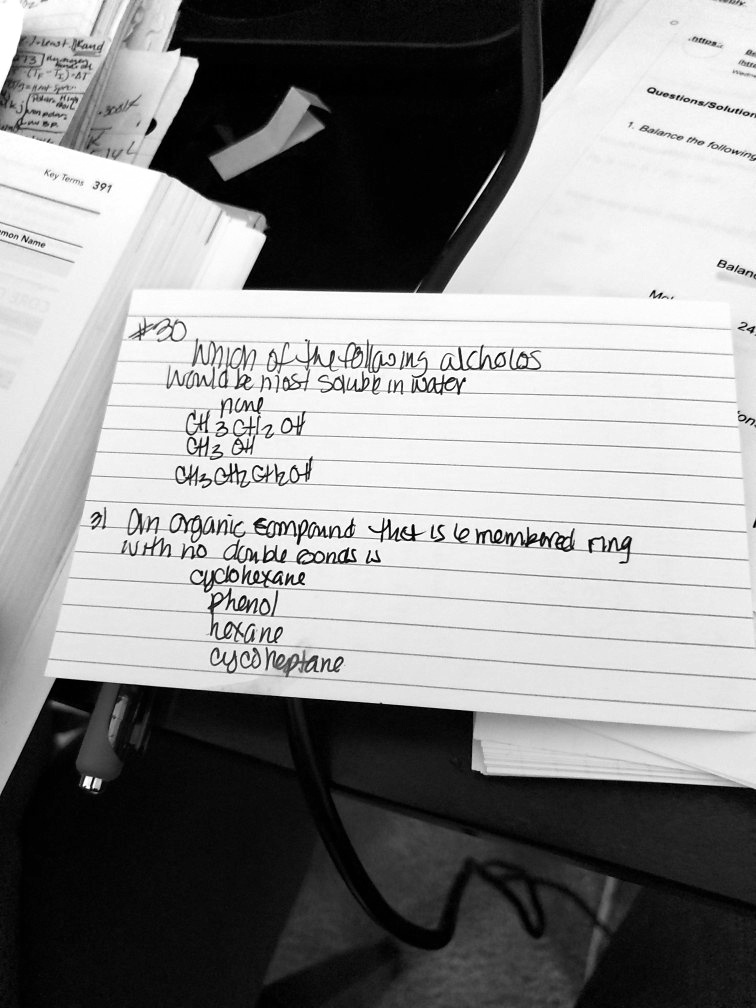 Key Terms 391
mon Name
https:
Questions/Solution
1. Balance the following
Balan
24.
#30
Which of the following alcholos
Would be most soluble in water
none
CH3CH2OH
CH3OH
CH3CH2CH2OH
31 An organic compound that is 6 membered ring
with no double bonds is
cyclohexane
phenol
hexane
cycoheptane